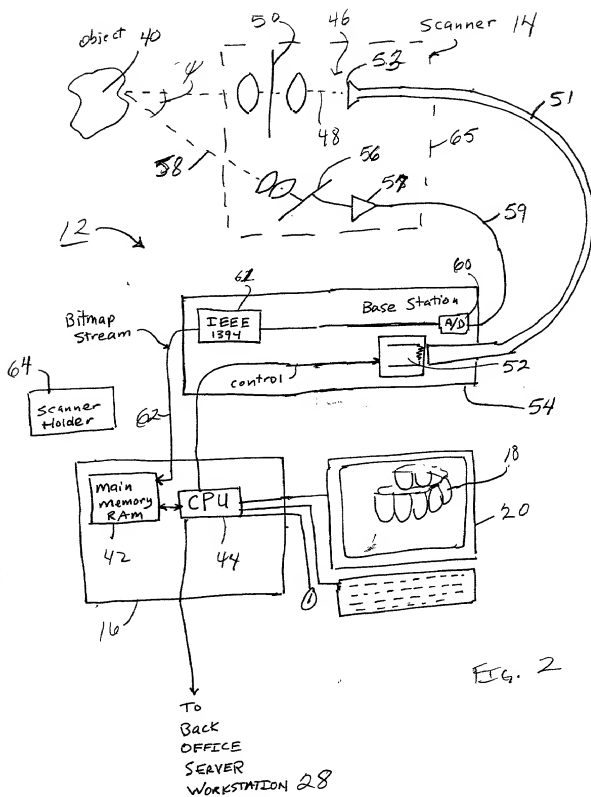 object
40
50
46
Scanner 14
53
φ
48
51
58
56
65
57
59
12
61
60
Base Station
IEEE
1394
A/D
Bitmap
Stream
control
52
54
64
Scanner
Holder
62
main
memory
RAM
CPU
18
20
42
44
16
FIG. 2
To
Back
OFFICE
SERVER
WORKSTATION 28